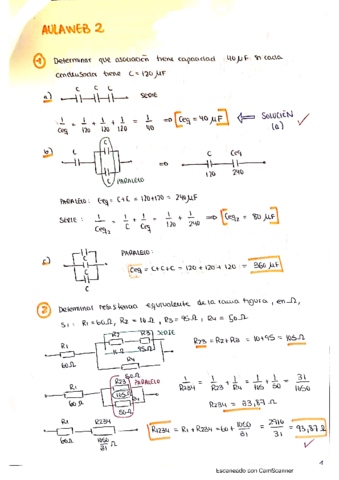 AULAWEB 2
1 Determinar que asociación tiene capacidad 40 μF si cada
condensador tiene C = 120 μF
a) C C C SERIE
1/Ceq = 1/120 + 1/120 + 1/120 = 1/40 => Ceq = 40 μF <= SOLUCIÓN (a) ✓
b) C C C PARALELO => C Ceq 120 240
PARALELO: Ceq = C+C = 120+120 = 240 μF
SERIE: 1/Ceq2 = 1/C + 1/Ceq = 1/120 + 1/240 => Ceq2 = 80 μF
c) C C C PARALELO:
Ceq = C+C+C = 120+120+120 = 360 μF
2 Determinar resistencia equivalente de la figura, en Ω,
si: R1 = 60 Ω, R2 = 10 Ω, R3 = 95 Ω, R4 = 50 Ω
R1 60Ω R2 10Ω R3 95Ω SERIE R4 50Ω
R23 = R2 + R3 = 10+95 = 105 Ω
R1 60Ω R23 PARALELO 105Ω R4 50Ω
1/R234 = 1/R23 + 1/R4 = 1/105 + 1/50 = 31/1050
R234 = 33,87 Ω
R1 60Ω R234 1050/31 Ω
R1234 = R1 + R234 = 60 + 1050/31 = 2910/31 = 93,87 Ω ✓
1
Escaneado con CamScanner